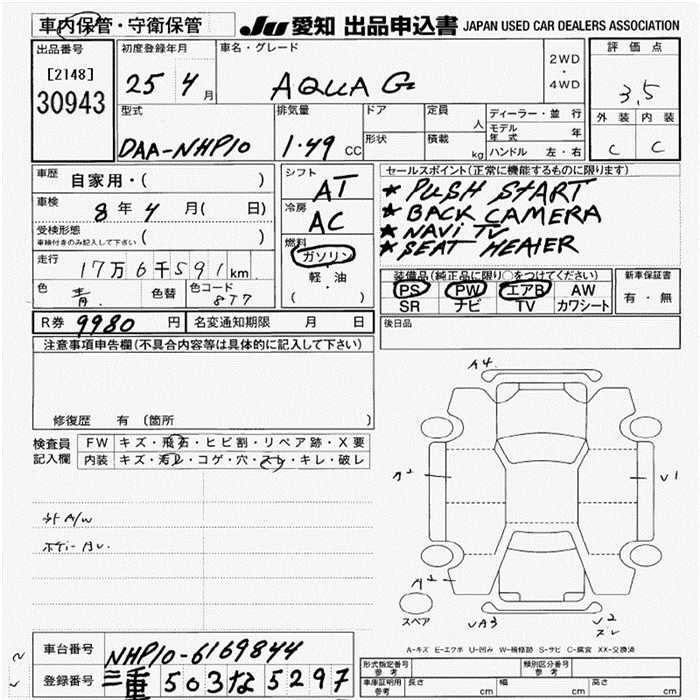 車内保管・守衛保管
JU 愛知 出品申込書 JAPAN USED CAR DEALERS ASSOCIATION
出品番号
[2148]
30943
初度登録年月
25 4 月
車名・グレード
AQUA G
2WD
・
4WD
評価点
3,5
外装 内装
C C
型式
DAA-NHP10
排気量
1.49 CC
ドア
形状
定員
人
積載
kg
ディーラー・並行
モデル年式 年
ハンドル 左・右
車歴
自家用・( )
車検
8年 4月( 日)
受検形態
車検付きのみ記入して下さい ( )
走行
17万6千591km
色
青
色替
色コード
8T7
シフト
AT
冷房
AC
燃料
ガソリン
軽・油
( )
セールスポイント(正常に機能するものに限ります)
★ PUSH START
★ BACK CAMERA
★ NAVI TV
★ SEAT HEATER
装備品(純正品に限り○をつけてください)
PS PW エアB AW
SR ナビ TV カワシート
新車保証書
有・無
R券 9980 円
名変通知期限 月 日
後日品
注意事項申告欄(不具合内容等は具体的に記入して下さい)
修復歴 有 (箇所 )
検査員
記入欄
FW キズ・飛石・ヒビ割・リペア跡・X要
内装 キズ・汚れ・コゲ・穴・スレ・キレ・破レ
外 A/W
ボディー AU.
A4
A2
U1
A2
スペア
UA3
U2
スレ
A-キズ E-エクボ U-凹み W-補修跡 S-サビ C-腐食 XX-交換済
車台番号
NHP10-6169844
登録番号
三重 503 な 5297
形式指定番号
参考
類別区分番号
参考
車庫証明用
参考
長さ cm
幅 cm
高さ cm